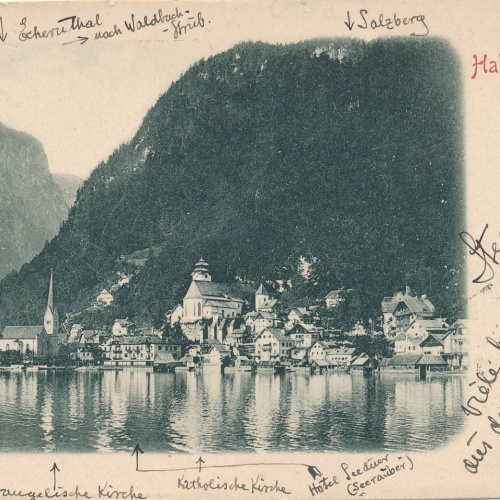 ↓ Echernthal
→ nach Waldbach-
Strub.
↓ Salzberg
Ha
aus d
↑
Katholische Kirche
Hotel Seeauer
(Seeräuber)
angelische Kirche